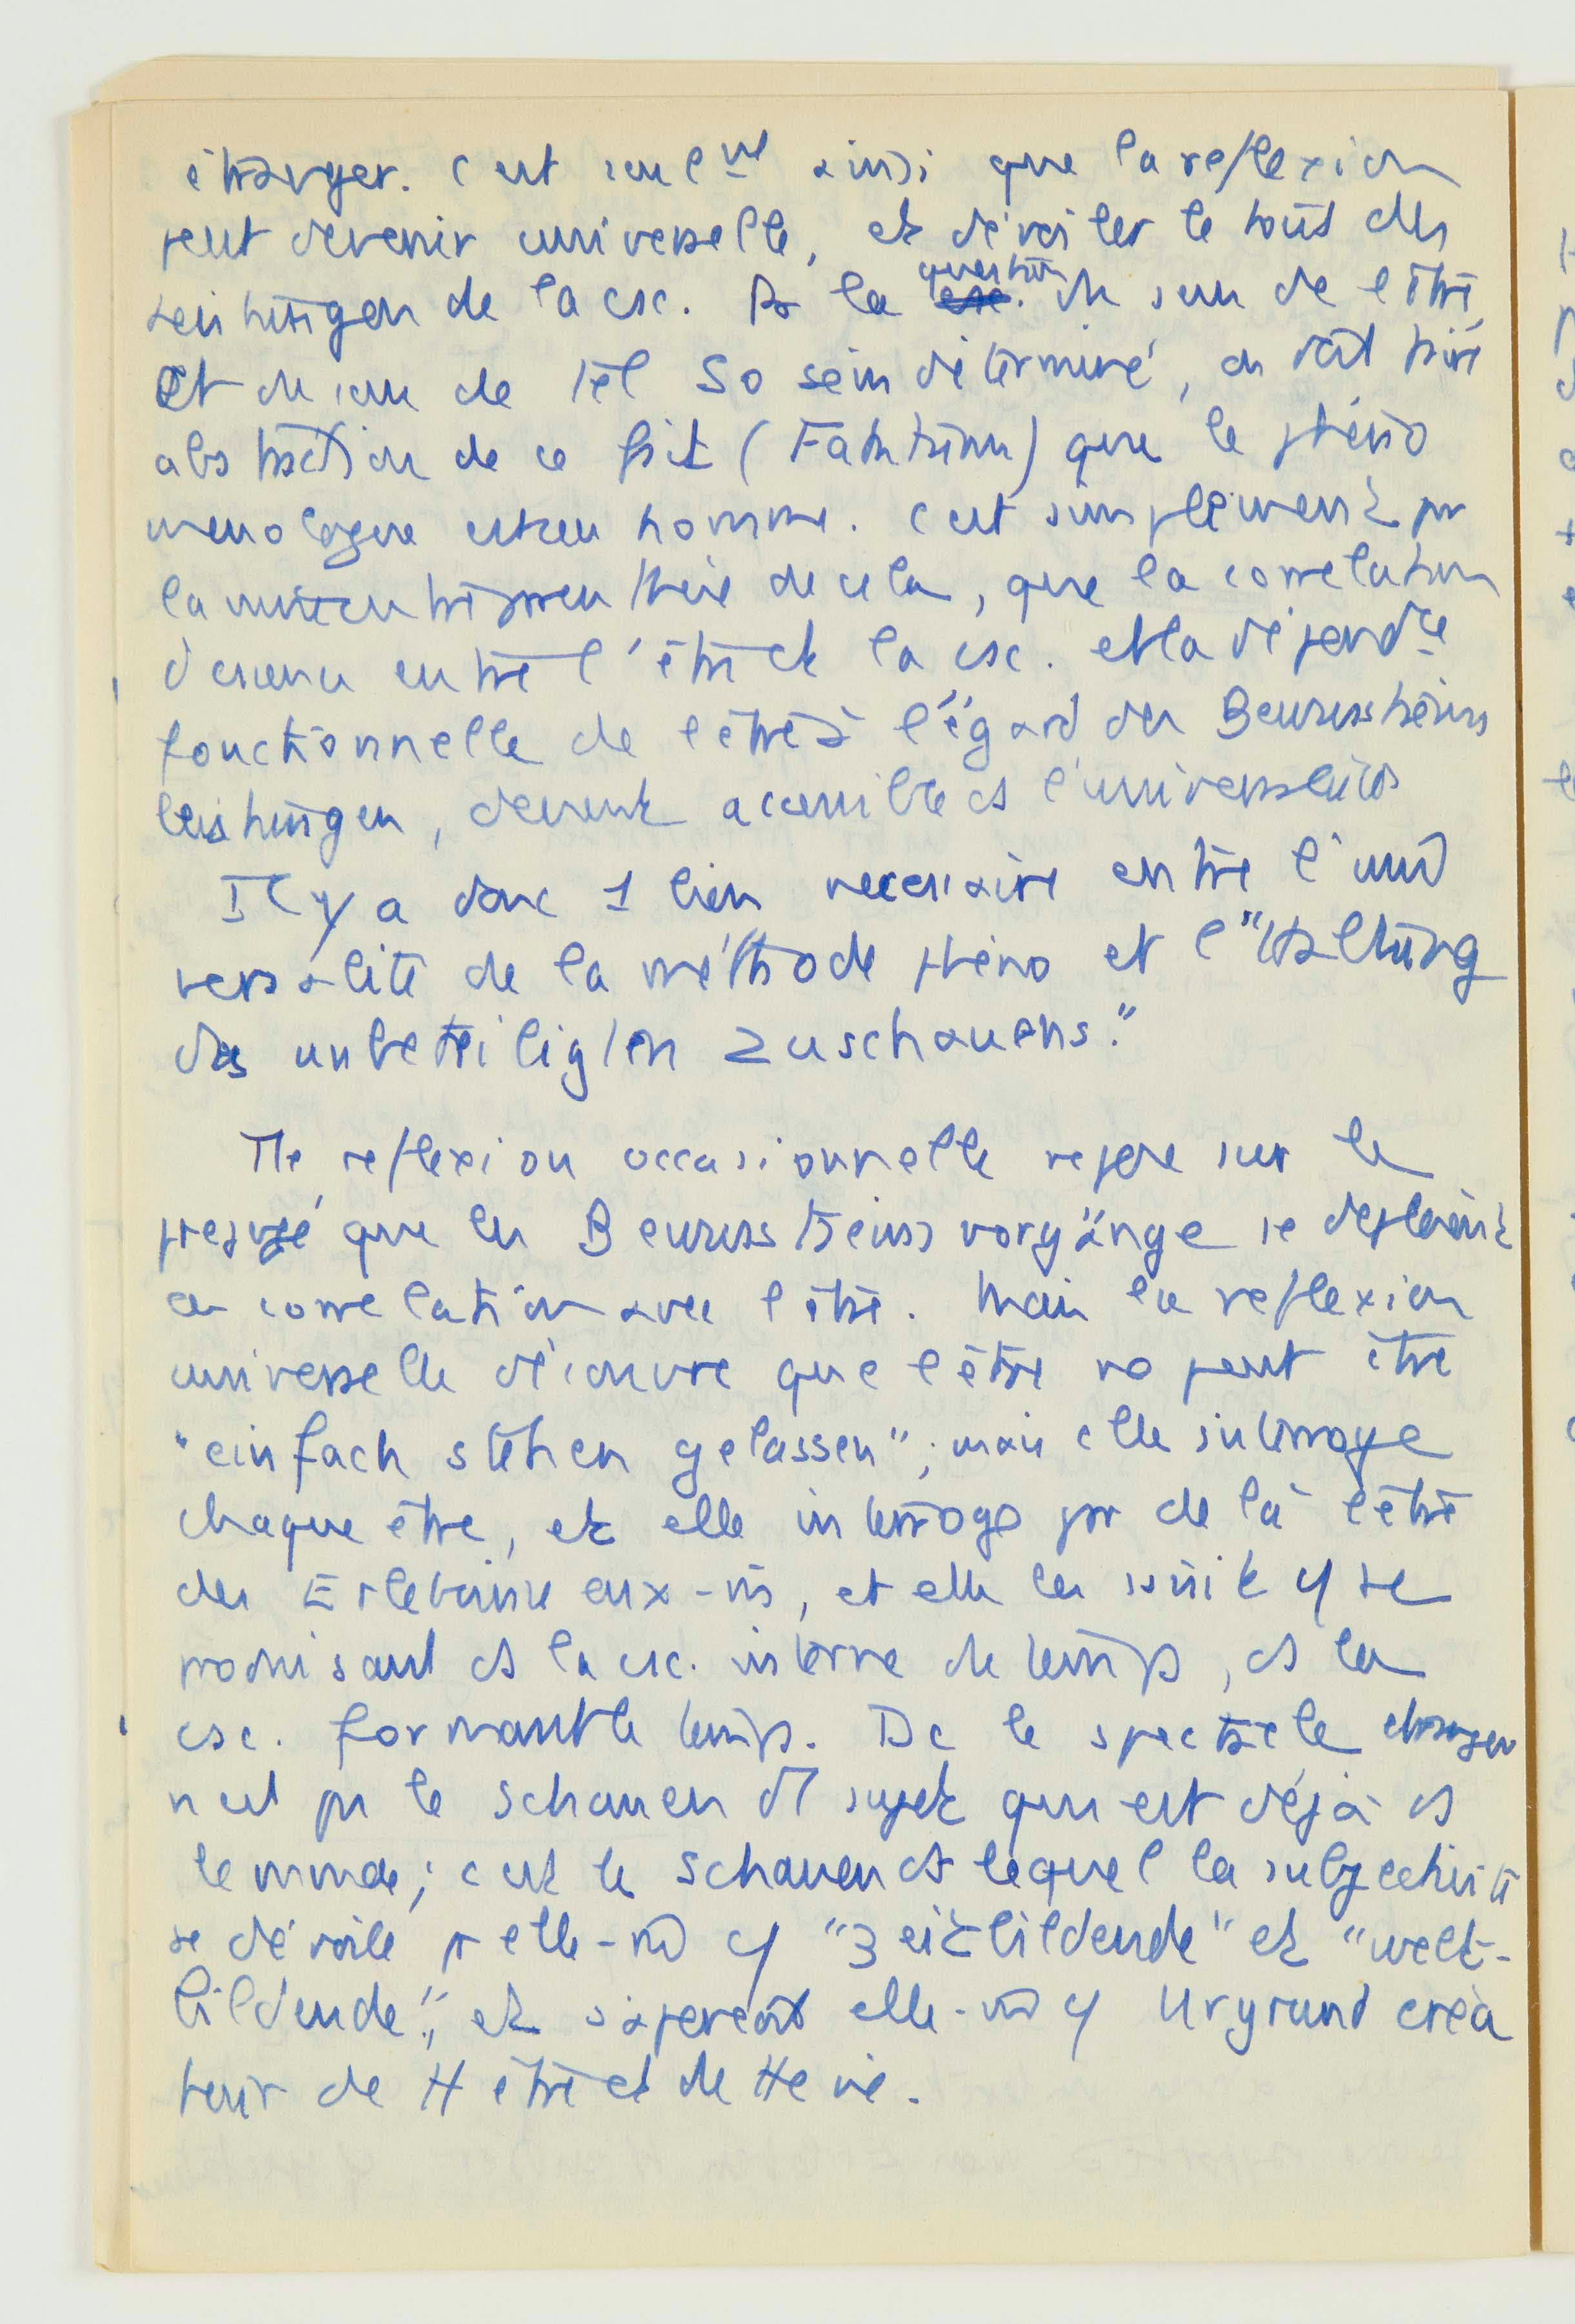 étranger. C'est seulmt ainsi que la reflexion
peut devenir universelle, et dévoiler le tout des
Leistungen de la csc. Ds la question du sens de l'être,
et du sens de tel So sein déterminé, on doit faire
abstraction de ce fait (Faktum) que le phéno
menologue est un homme. C'est simplement par
la mise entre parenthèse de cela, que la correlation
d'essence entre l'être et la csc. et la dépendce
fonctionnelle de l'être à l'égard des Bewusstseins
leistungen, devient accessible ds l'universalité
Il y a donc 1 lien necessaire entre l'uni
versalité de la méthode phéno et l'"Haltung
des unbeteiligten Zuschauens."
Tte reflexion occasionnelle repose sur le
prejugé que les Bewusstseinsvorgänge se déploient
en correlation avec l'être. Mais la reflexion
universelle découvre que l'être ne peut être
"einfach stehen gelassen"; mais elle interroge
chaque être, et elle interroge par delà l'être
des Erlebnisse eux-ms, et elle les saisit c/ se
produisant ds la csc. interne du temps, ds la
csc. formant le temps. Dc le spectacle étranger
n'est pas le Schauen d'1 sujet qui est déjà ds
le monde; c'est le Schauen ds lequel la subjectivité
se dévoile à elle-m c/ "zeitbildende" et "welt-
bildende", et s'aperçoit elle-m c/ Urgrund créa
teur de tt être et de tte vie.